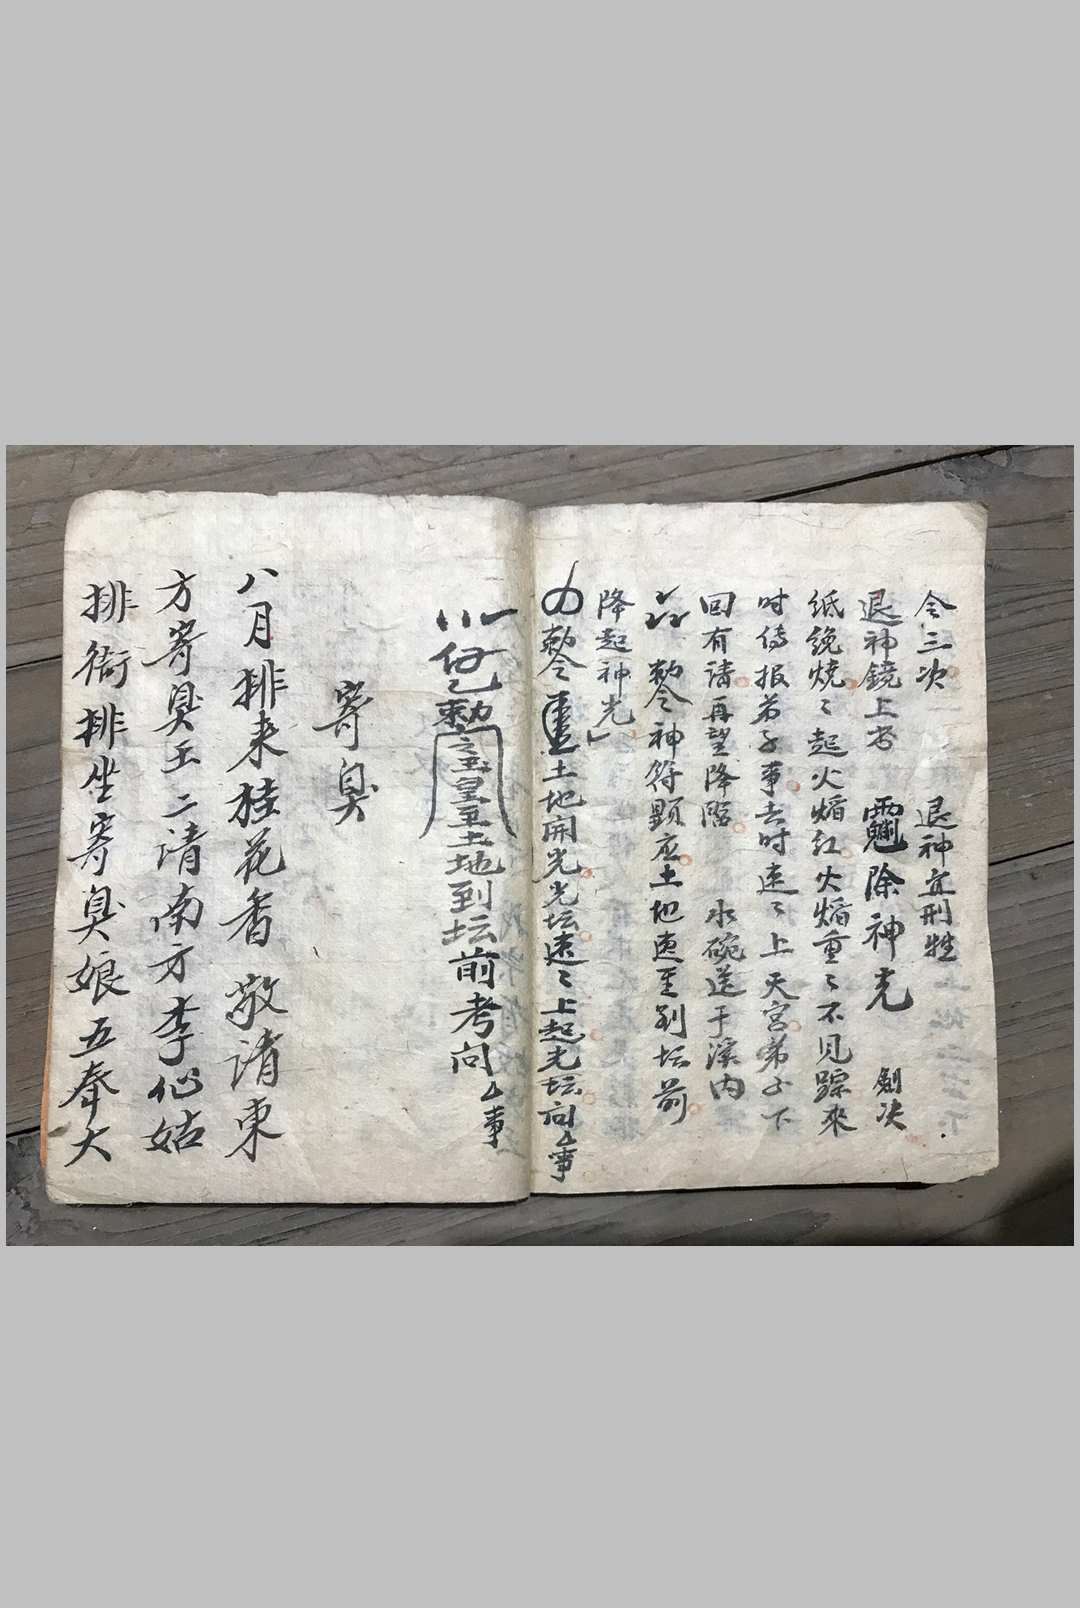 令三次　退神宜刑牲
退神鏡上書　除神光　劍决
纸錢燒〻起火焰红火焰重〻不见踪來
时傳报弟子事去时速〻上天宮弟子下
回有请再望降臨　水碗送于溪内
勅令神符顕应土地速至到坛前
降起神光
勅令土地開光光坛速〻上起光坛问厶事
勅玉皇土地到坛前考问厶事
寄臭
八月排来桂花香　敬请東
方寄臭王二请南方李仙姑
排衙排坐寄臭娘五奉大